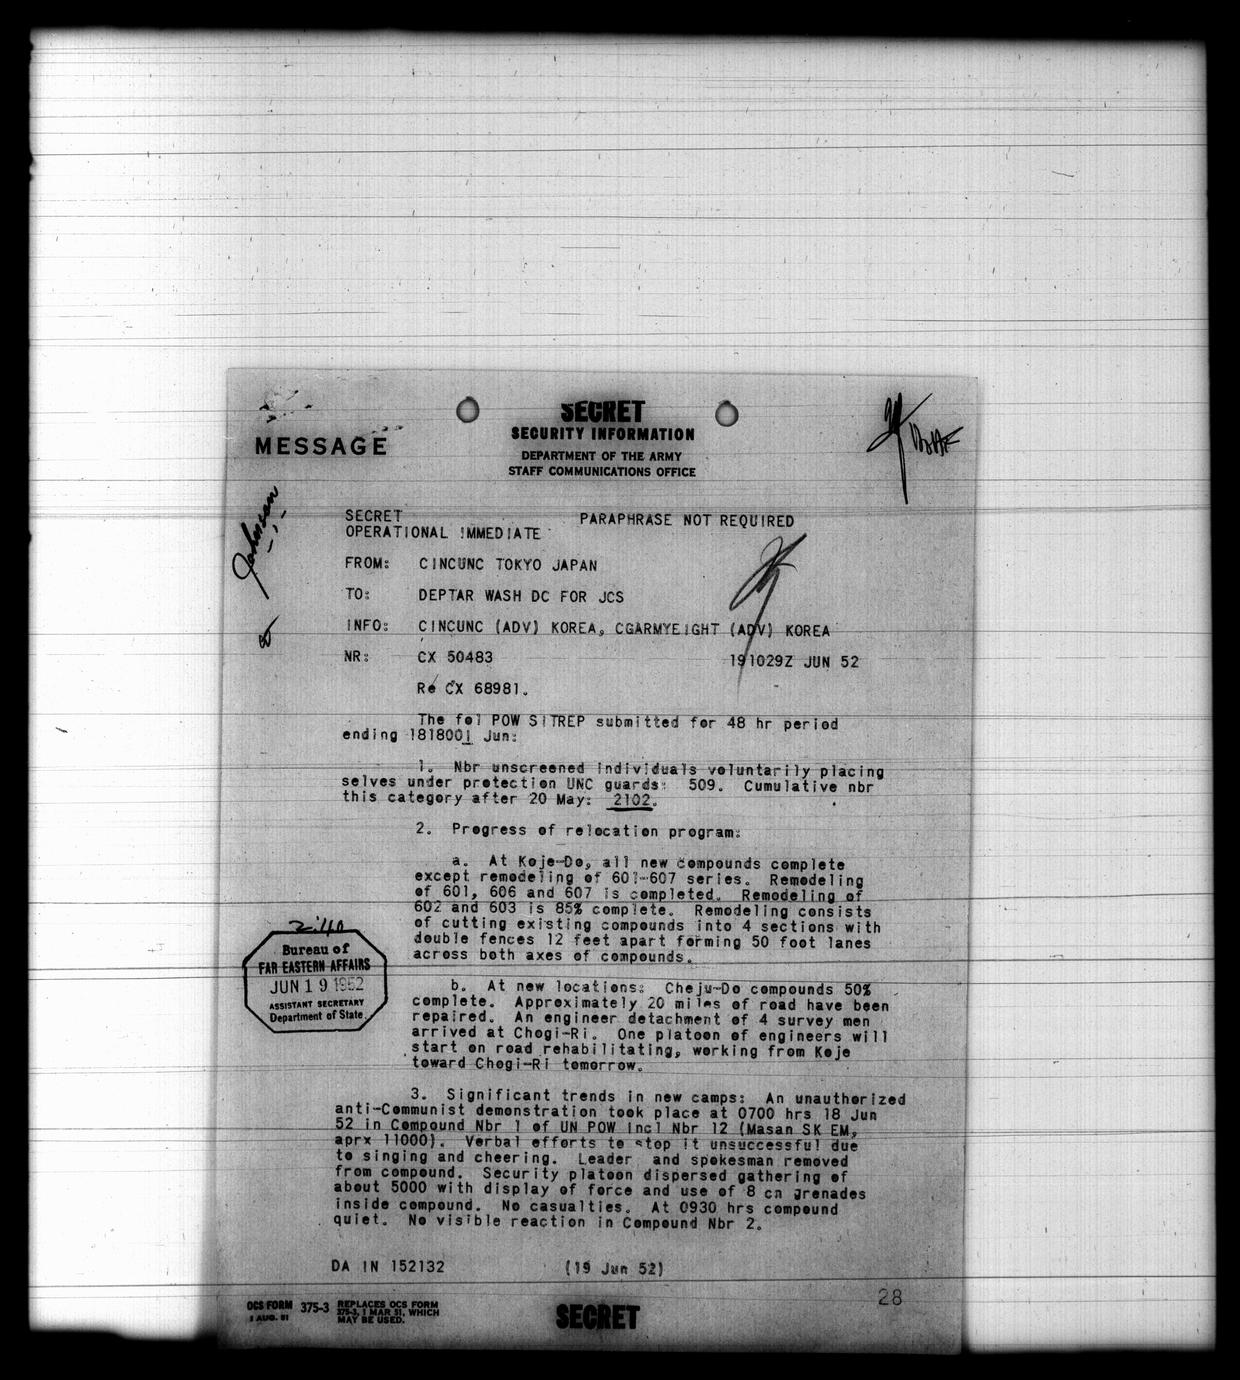 MESSAGE
SECRET
SECURITY INFORMATION
DEPARTMENT OF THE ARMY
STAFF COMMUNICATIONS OFFICE
Johnson
SECRET PARAPHRASE NOT REQUIRED
OPERATIONAL IMMEDIATE
FROM: CINCUNC TOKYO JAPAN
TO: DEPTAR WASH DC FOR JCS
INFO: CINCUNC (ADV) KOREA, CGARMYEIGHT (ADV) KOREA
NR: CX 50483 191029Z JUN 52
Re CX 68981.
The fol POW SITREP submitted for 48 hr period
ending 181800I Jun:
1. Nbr unscreened individuals voluntarily placing
selves under protection UNC guards: 509. Cumulative nbr
this category after 20 May: 2102.
2. Progress of relocation program:
a. At Koje-Do, all new compounds complete
except remodeling of 601-607 series. Remodeling
of 601, 606 and 607 is completed. Remodeling of
602 and 603 is 85% complete. Remodeling consists
of cutting existing compounds into 4 sections with
double fences 12 feet apart forming 50 foot lanes
across both axes of compounds.
2:40
Bureau of
FAR EASTERN AFFAIRS
JUN 19 1952
ASSISTANT SECRETARY
Department of State
b. At new locations: Cheju-Do compounds 50%
complete. Approximately 20 miles of road have been
repaired. An engineer detachment of 4 survey men
arrived at Chogi-Ri. One platoon of engineers will
start on road rehabilitating, working from Koje
toward Chogi-Ri tomorrow.
3. Significant trends in new camps: An unauthorized
anti-Communist demonstration took place at 0700 hrs 18 Jun
52 in Compound Nbr 1 of UN POW Incl Nbr 12 (Masan SK EM,
aprx 11000). Verbal efforts to stop it unsuccessful due
to singing and cheering. Leader and spokesman removed
from compound. Security platoon dispersed gathering of
about 5000 with display of force and use of 8 cn grenades
inside compound. No casualties. At 0930 hrs compound
quiet. No visible reaction in Compound Nbr 2.
DA IN 152132 (19 Jun 52)
28
OCS FORM 375-3 REPLACES OCS FORM
1 AUG. 51 375-3, 1 MAR 51, WHICH
MAY BE USED.
SECRET